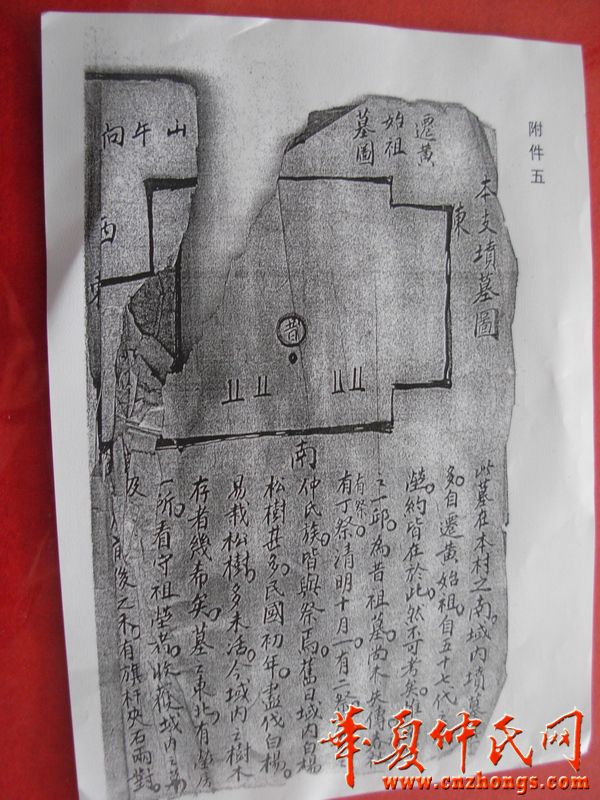 附件五
本支墳墓圖
東
遷黃
始祖
墓圖
山午向
西
昔
南
此墓在本村之南域内墳墓
多自遷黃始祖自五十七代
塋約皆在於此然不可考矣。
之一邱。為昔祖墓尚未失傳
有祭。
有丁祭清明十月一有二祭
仲氏族。皆與祭焉。舊日域内白楊
松樹甚多。民國初年。盡伐白楊。
易栽松樹。多未活。今域内之樹木
存者幾希矣。墓之東北。有塋房
一所。看守祖塋者。收穫域内之
及 後之禾。有旗杆夾石兩對。
華夏仲氏网
www.cnzhongs.com